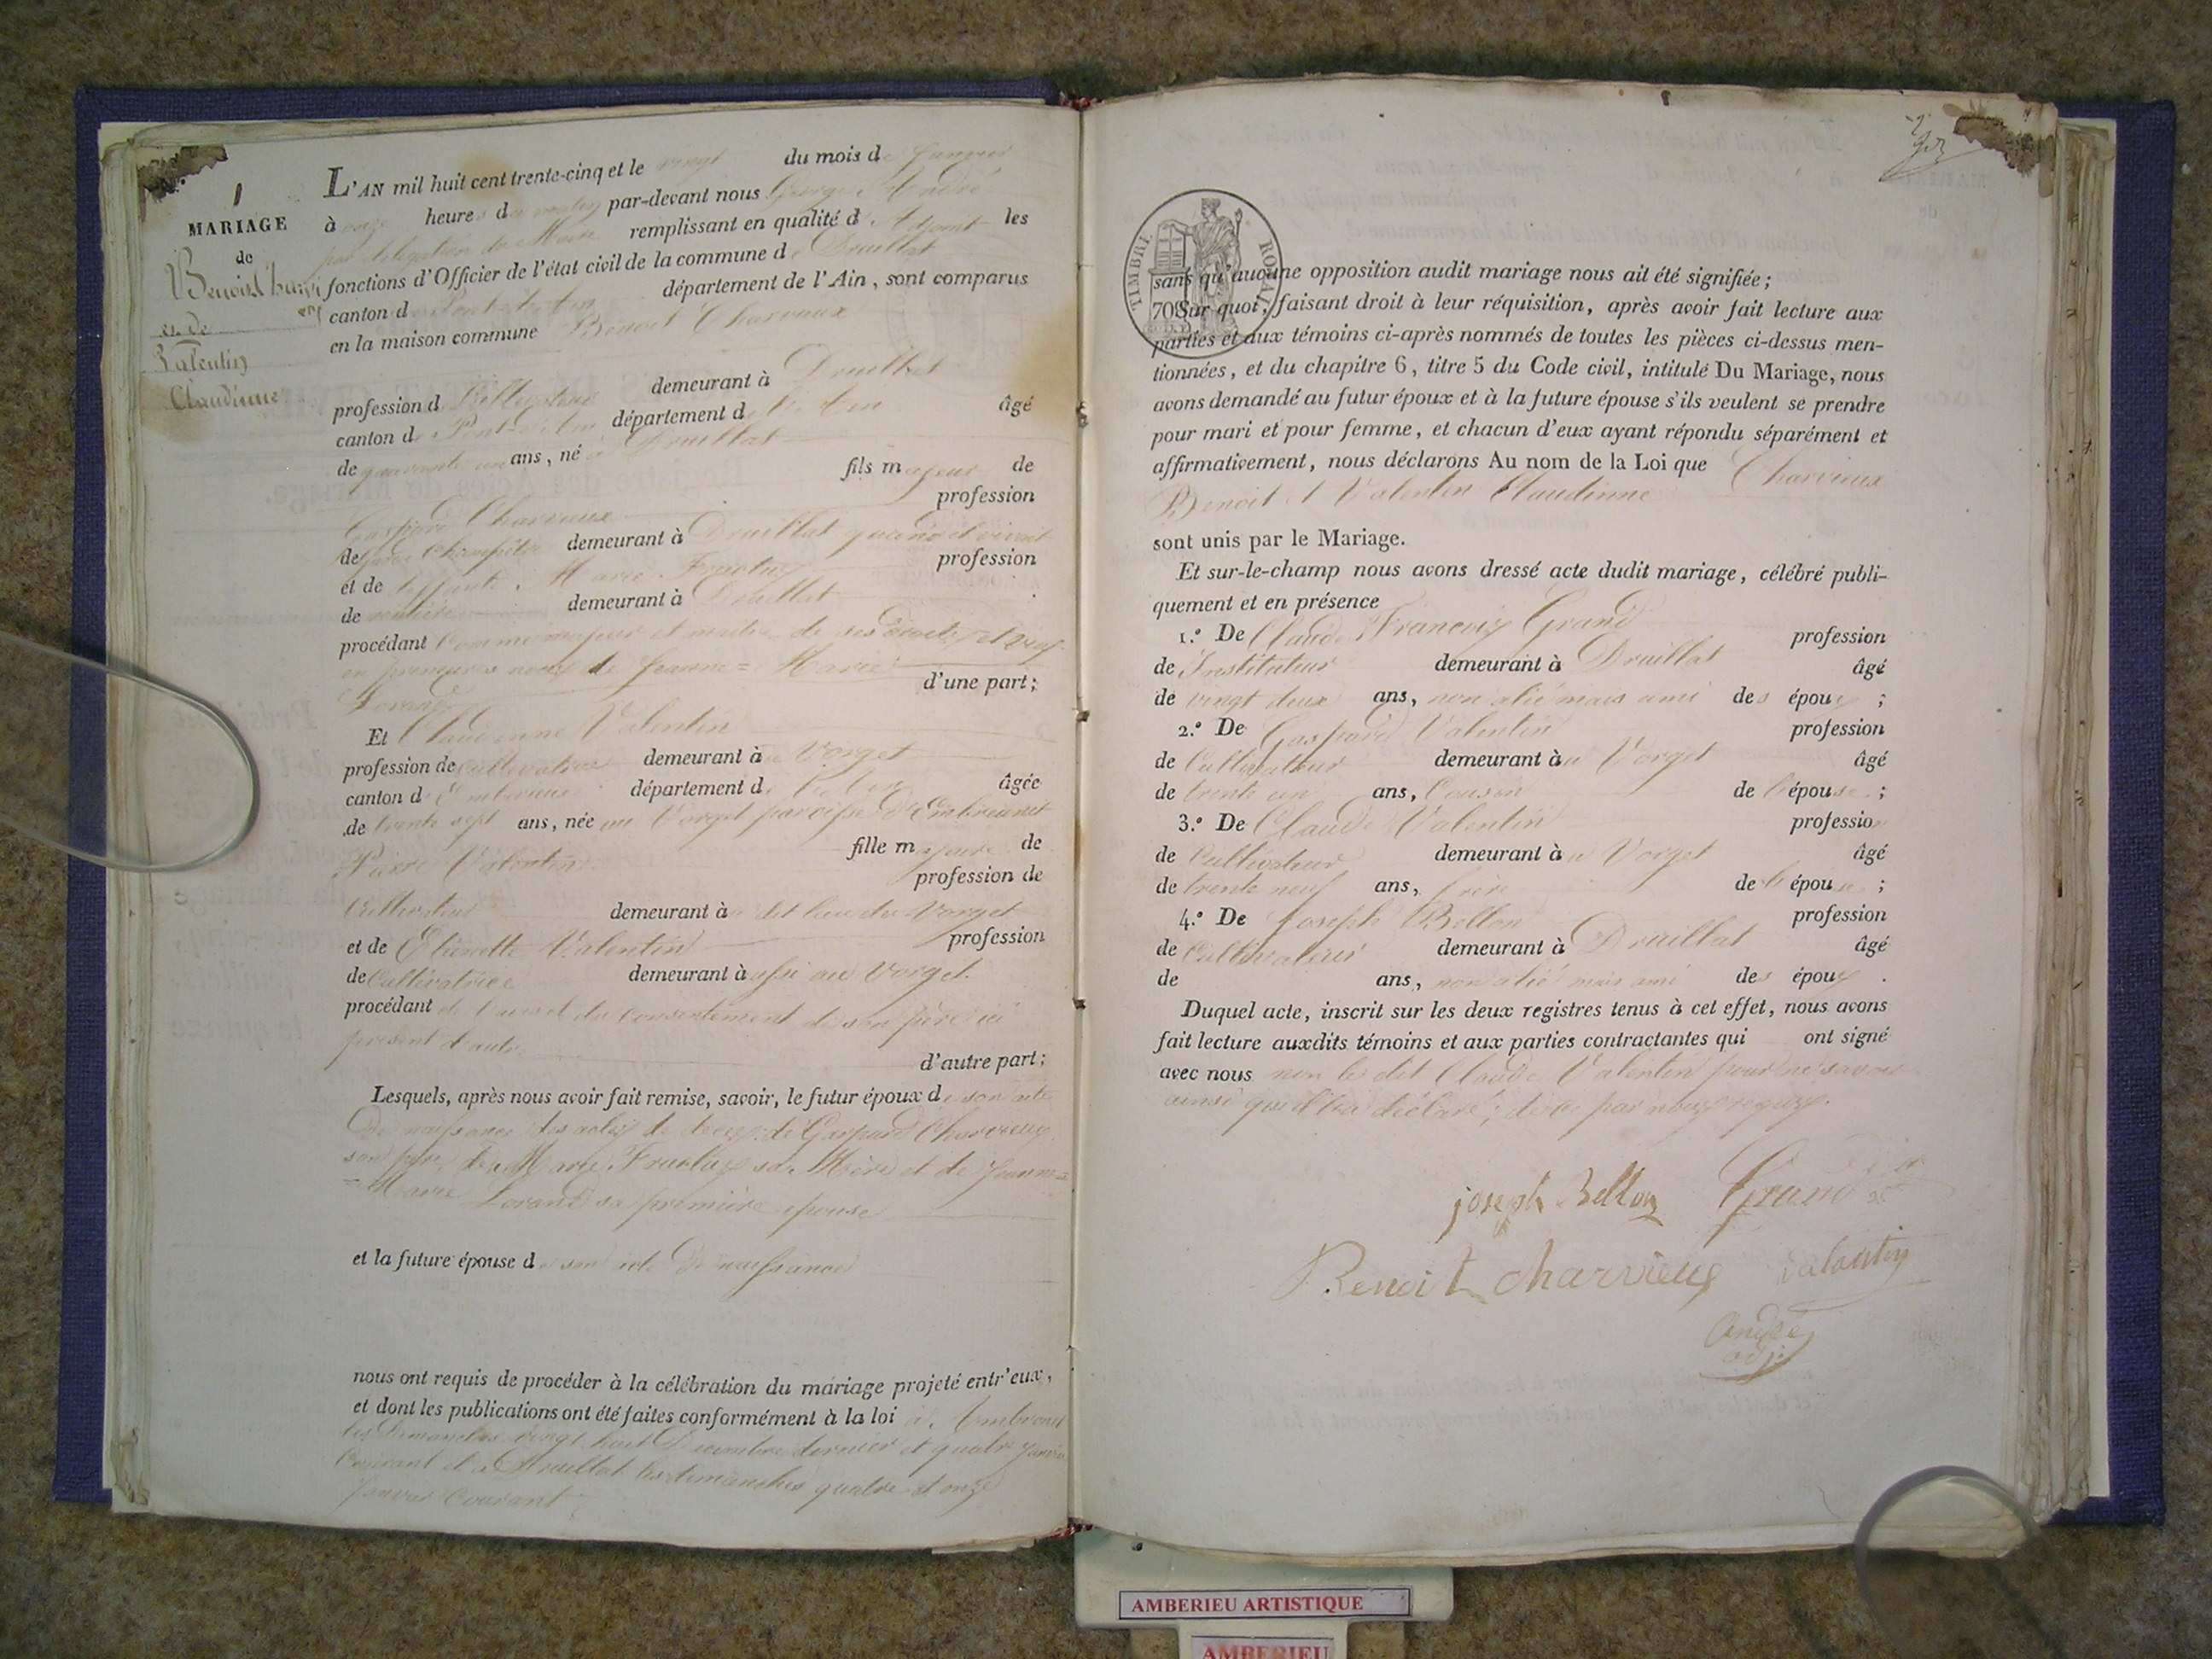 1
MARIAGE
de
Benoist
et de
Valentin
Claudinne
L'AN mil huit cent trente-cinq et le vingt du mois de Janvier
à onze heures du matin par-devant nous George André
par délégation du Maire remplissant en qualité d'Adjoint les
fonctions d'Officier de l'état civil de la commune de Druillat
canton de Pont-d'Ain département de l'Ain, sont comparus
en la maison commune Benoit Charvieux
profession de Cultivateur demeurant à Druillat
canton de Pont-d'Ain département de l'Ain âgé
de quarante un ans, né à Druillat
fils majeur de
Gaspard Charvieux profession
de garde Champêtre demeurant à Druillat
et de défunte Marie profession
de rentière demeurant à Druillat
procédant comme majeur et maître de ses droits et veuf
en premières noces de Jeanne=Marie
Lorand d'une part;
Et Claudinne Valentin
profession de Cultivatrice demeurant au Vorget
canton d' département de l'Ain âgée
de trente sept ans, née au Vorget paroisse
fille majeure de
Pierre Valentin profession de
Cultivateur demeurant au dit lieu du Vorget
et de Etiennette Valentin profession
de Cultivatrice demeurant aussi au Vorget
procédant de l'avis et du Consentement de son père ici
présent d'autre
d'autre part;
Lesquels, après nous avoir fait remise, savoir, le futur époux de son acte
De naissance des actes de décès de Gaspard Charvieux
son père, de Marie sa Mère et de Jeanne=
=Marie Lorand sa première épouse
et la future épouse de son acte De naissance
nous ont requis de procéder à la célébration du mariage projeté entr'eux,
et dont les publications ont été faites conformément à la loi à Ambronay
les Dimanches vingt huit Décembre dernier et quatre Janvier
Courant et à Druillat les dimanches quatre et onze
Janvier Courant
TIMBRE ROYAL
70
sans qu'aucune opposition audit mariage nous ait été signifiée;
Sur quoi, faisant droit à leur réquisition, après avoir fait lecture aux
parties et aux témoins ci-après nommés de toutes les pièces ci-dessus men-
tionnées, et du chapitre 6, titre 5 du Code civil, intitulé Du Mariage, nous
avons demandé au futur époux et à la future épouse s'ils veulent se prendre
pour mari et pour femme, et chacun d'eux ayant répondu séparément et
affirmativement, nous déclarons Au nom de la Loi que Charvieux
Benoit et Valentin Claudinne
sont unis par le Mariage.
Et sur-le-champ nous avons dressé acte dudit mariage, célébré publi-
quement et en présence
1.° De Claude François Grand profession
de Instituteur demeurant à Druillat âgé
de vingt deux ans, non alié mais ami des époux ;
2.° De Gaspard Valentin profession
de Cultivateur demeurant au Vorget âgé
de trente un ans, Cousin de l'épouse ;
3.° De Claude Valentin profession
de Cultivateur demeurant au Vorget âgé
de trente neuf ans, frère de l'épouse ;
4.° De Joseph Bellon profession
de Cultivateur demeurant à Druillat âgé
de ans, non alié mais ami des époux .
Duquel acte, inscrit sur les deux registres tenus à cet effet, nous avons
fait lecture auxdits témoins et aux parties contractantes qui ont signé
avec nous non le dit Claude Valentin pour ne savoir
ainsi qu'il l'a déclaré; de ce par nous requis.
joseph Bellon Grand
Benoit charvieux valantin
André
adj
AMBERIEU ARTISTIQUE
AMBERIEU